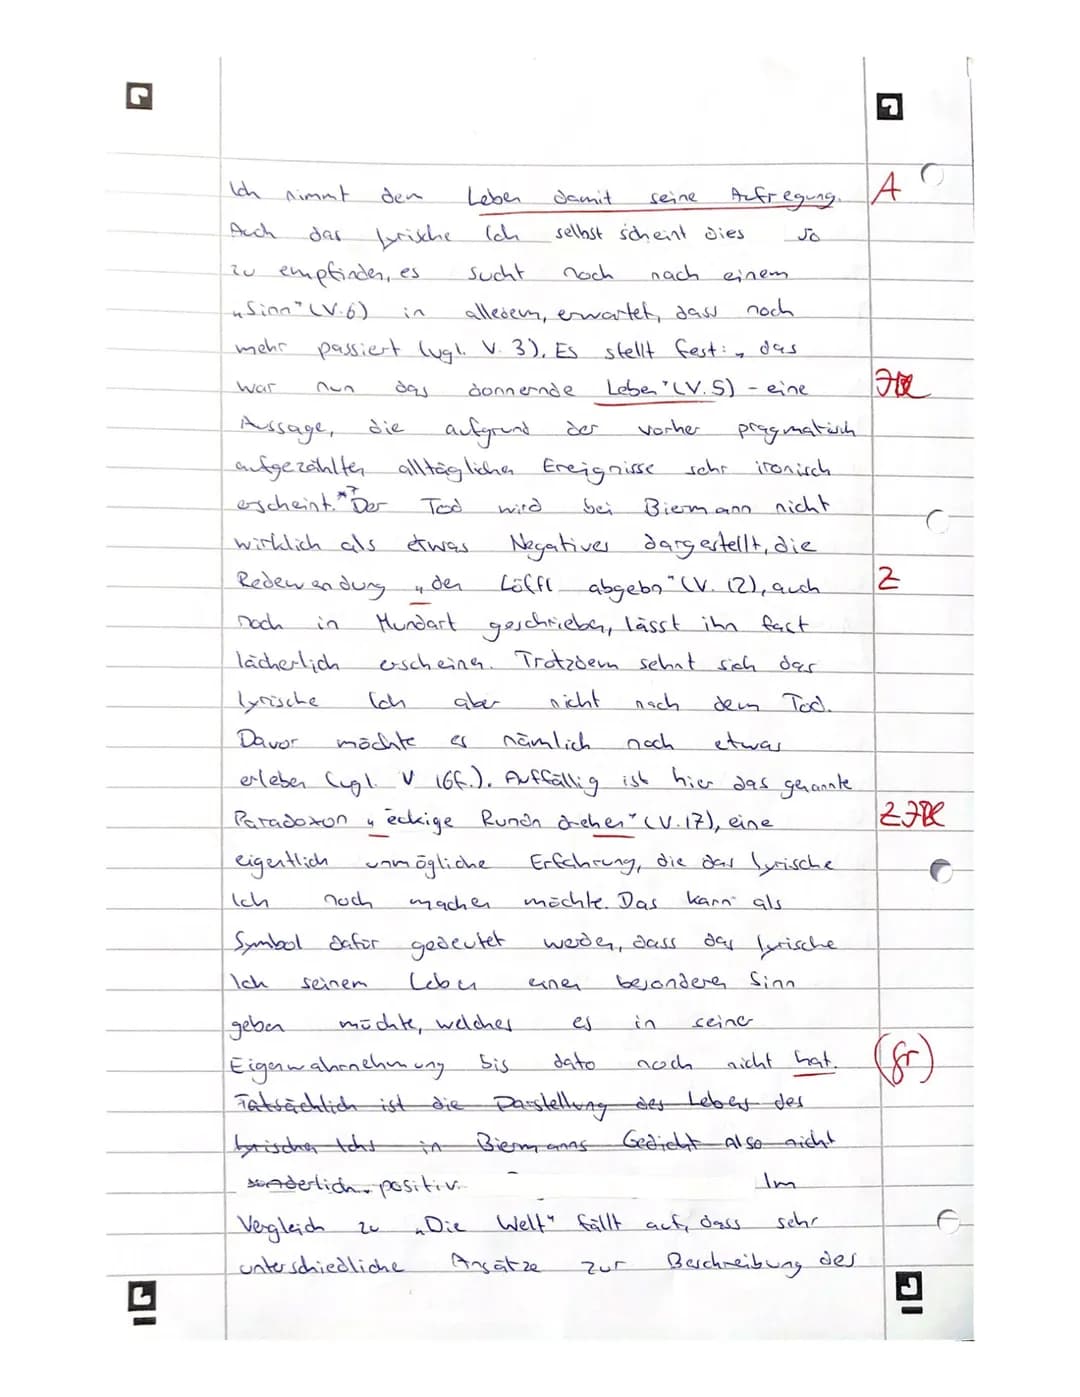 Ich nimmt dem Leben damit seine Aufregung. A
Auch das lyrische Ich selbst scheint dies so
zu empfinden, es sucht noch nach einem
„Sinn" (V.6) in alledem, erwartet, dass noch
mehr passiert (vgl. V. 3). Es stellt fest: „das
war nun das donnernde Leben" (V.5) - eine
Aussage, die aufgrund der vorher pragmatisch
aufgezählten alltäglichen Ereignisse sehr ironisch
erscheint. *7 Der Tod wird bei Biermann nicht
wirklich als etwas Negatives dargestellt, die
Redewendung „den Löffl abgebn" (V. 12), auch Z
noch in Mundart geschrieben, lässt ihn fast
lächerlich erscheinen. Trotzdem sehnt sich das
lyrische Ich aber nicht nach dem Tod.
Davor möchte es nämlich noch etwas
erleben (vgl. V 16f.). Auffällig ist hier das genannte
Paradoxon „eckige Rundn drehen" (V.17), eine
eigentlich unmögliche Erfahrung, die das lyrische
Ich noch machen möchte. Das kann als
Symbol dafür gedeutet werden, dass das lyrische
Ich seinem Leben einen besonderen Sinn
geben möchte, welches es in seiner
Eigenwahrnehmung bis dato noch nicht hat. (Gr)
Tatsächlich ist die Darstellung des Lebens des
lyrischen Ichs in Biermanns Gedicht also nicht
sonderlich positiv. Im
Vergleich zu „Die Welt" fällt auf, dass sehr
unterschiedliche Ansätze zur Beschreibung des